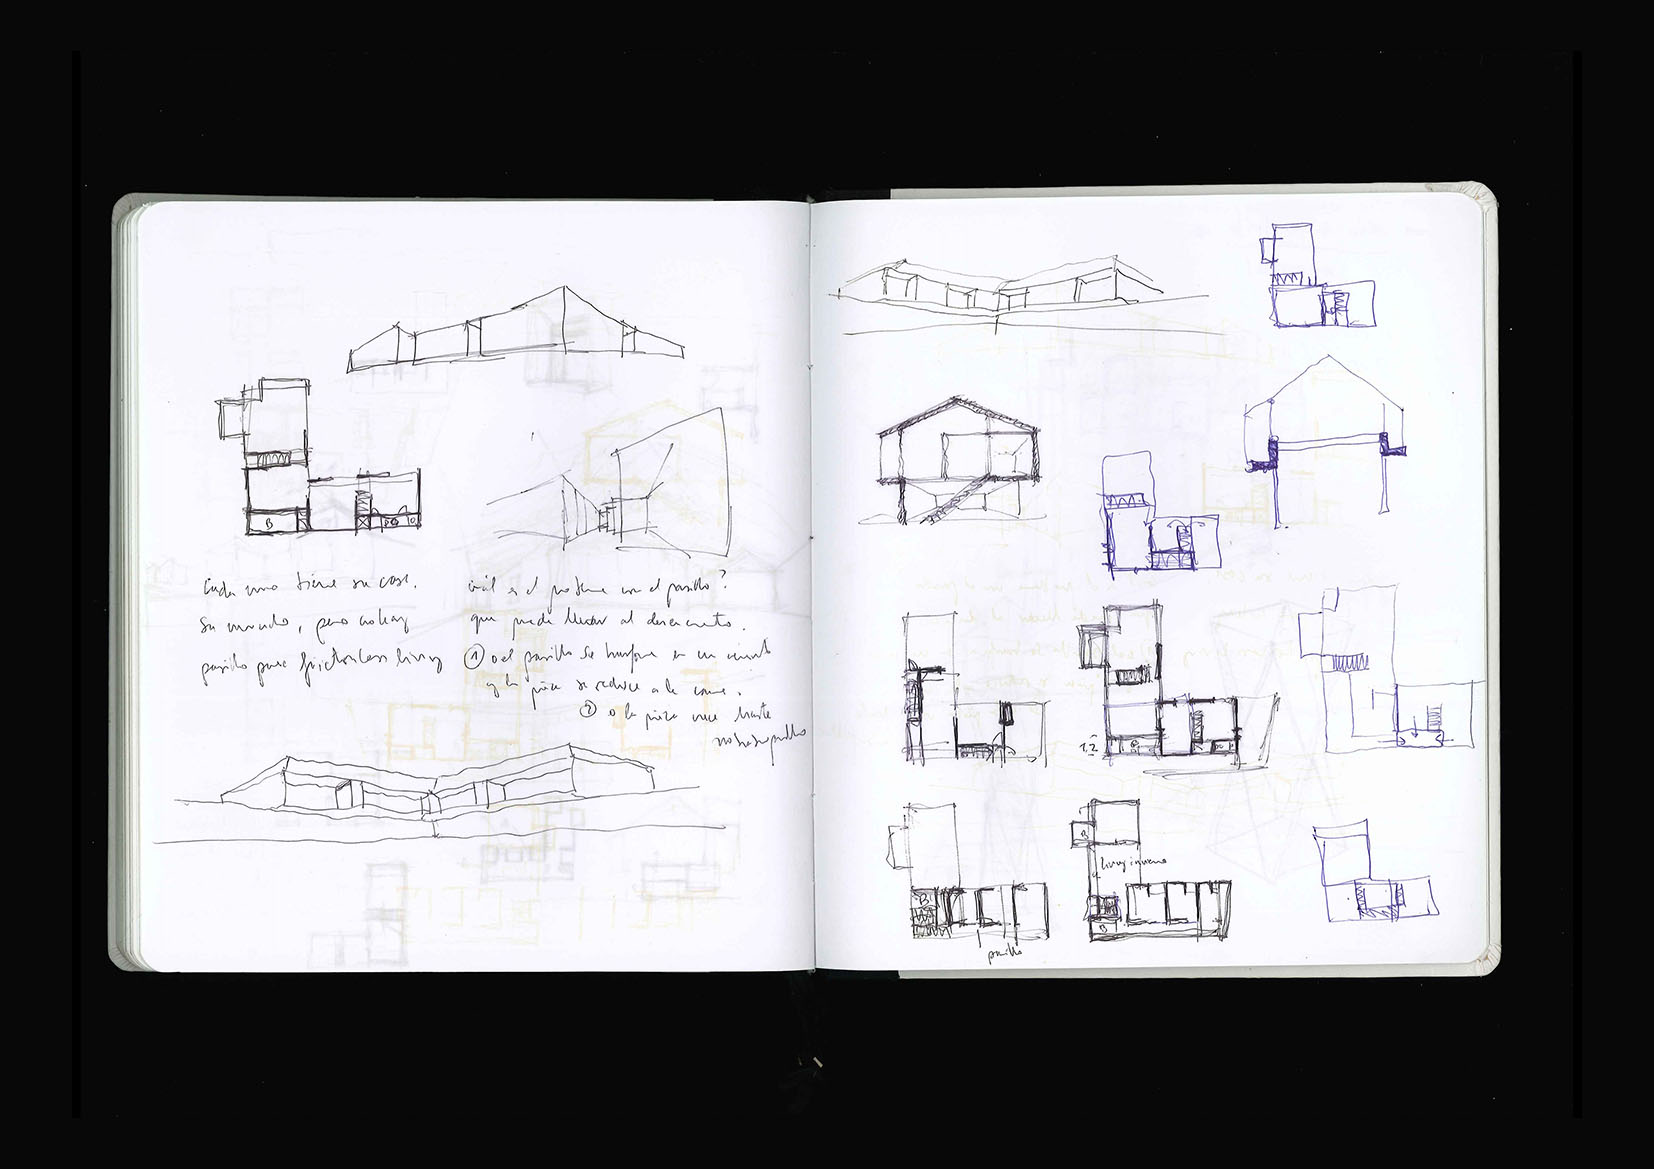 B
Cada uno tiene su casa.
su mundo, pero no hay
pasillo para frictionless living
cuál es el problema con el pasillo?
que puede llevar al desencuentro.
① o el pasillo se transforma en un cuarto
y la pieza se reduce a la cama.
② o la pieza crece hasta
pasillo
1,2
B
B
living invierno
B
pasillo